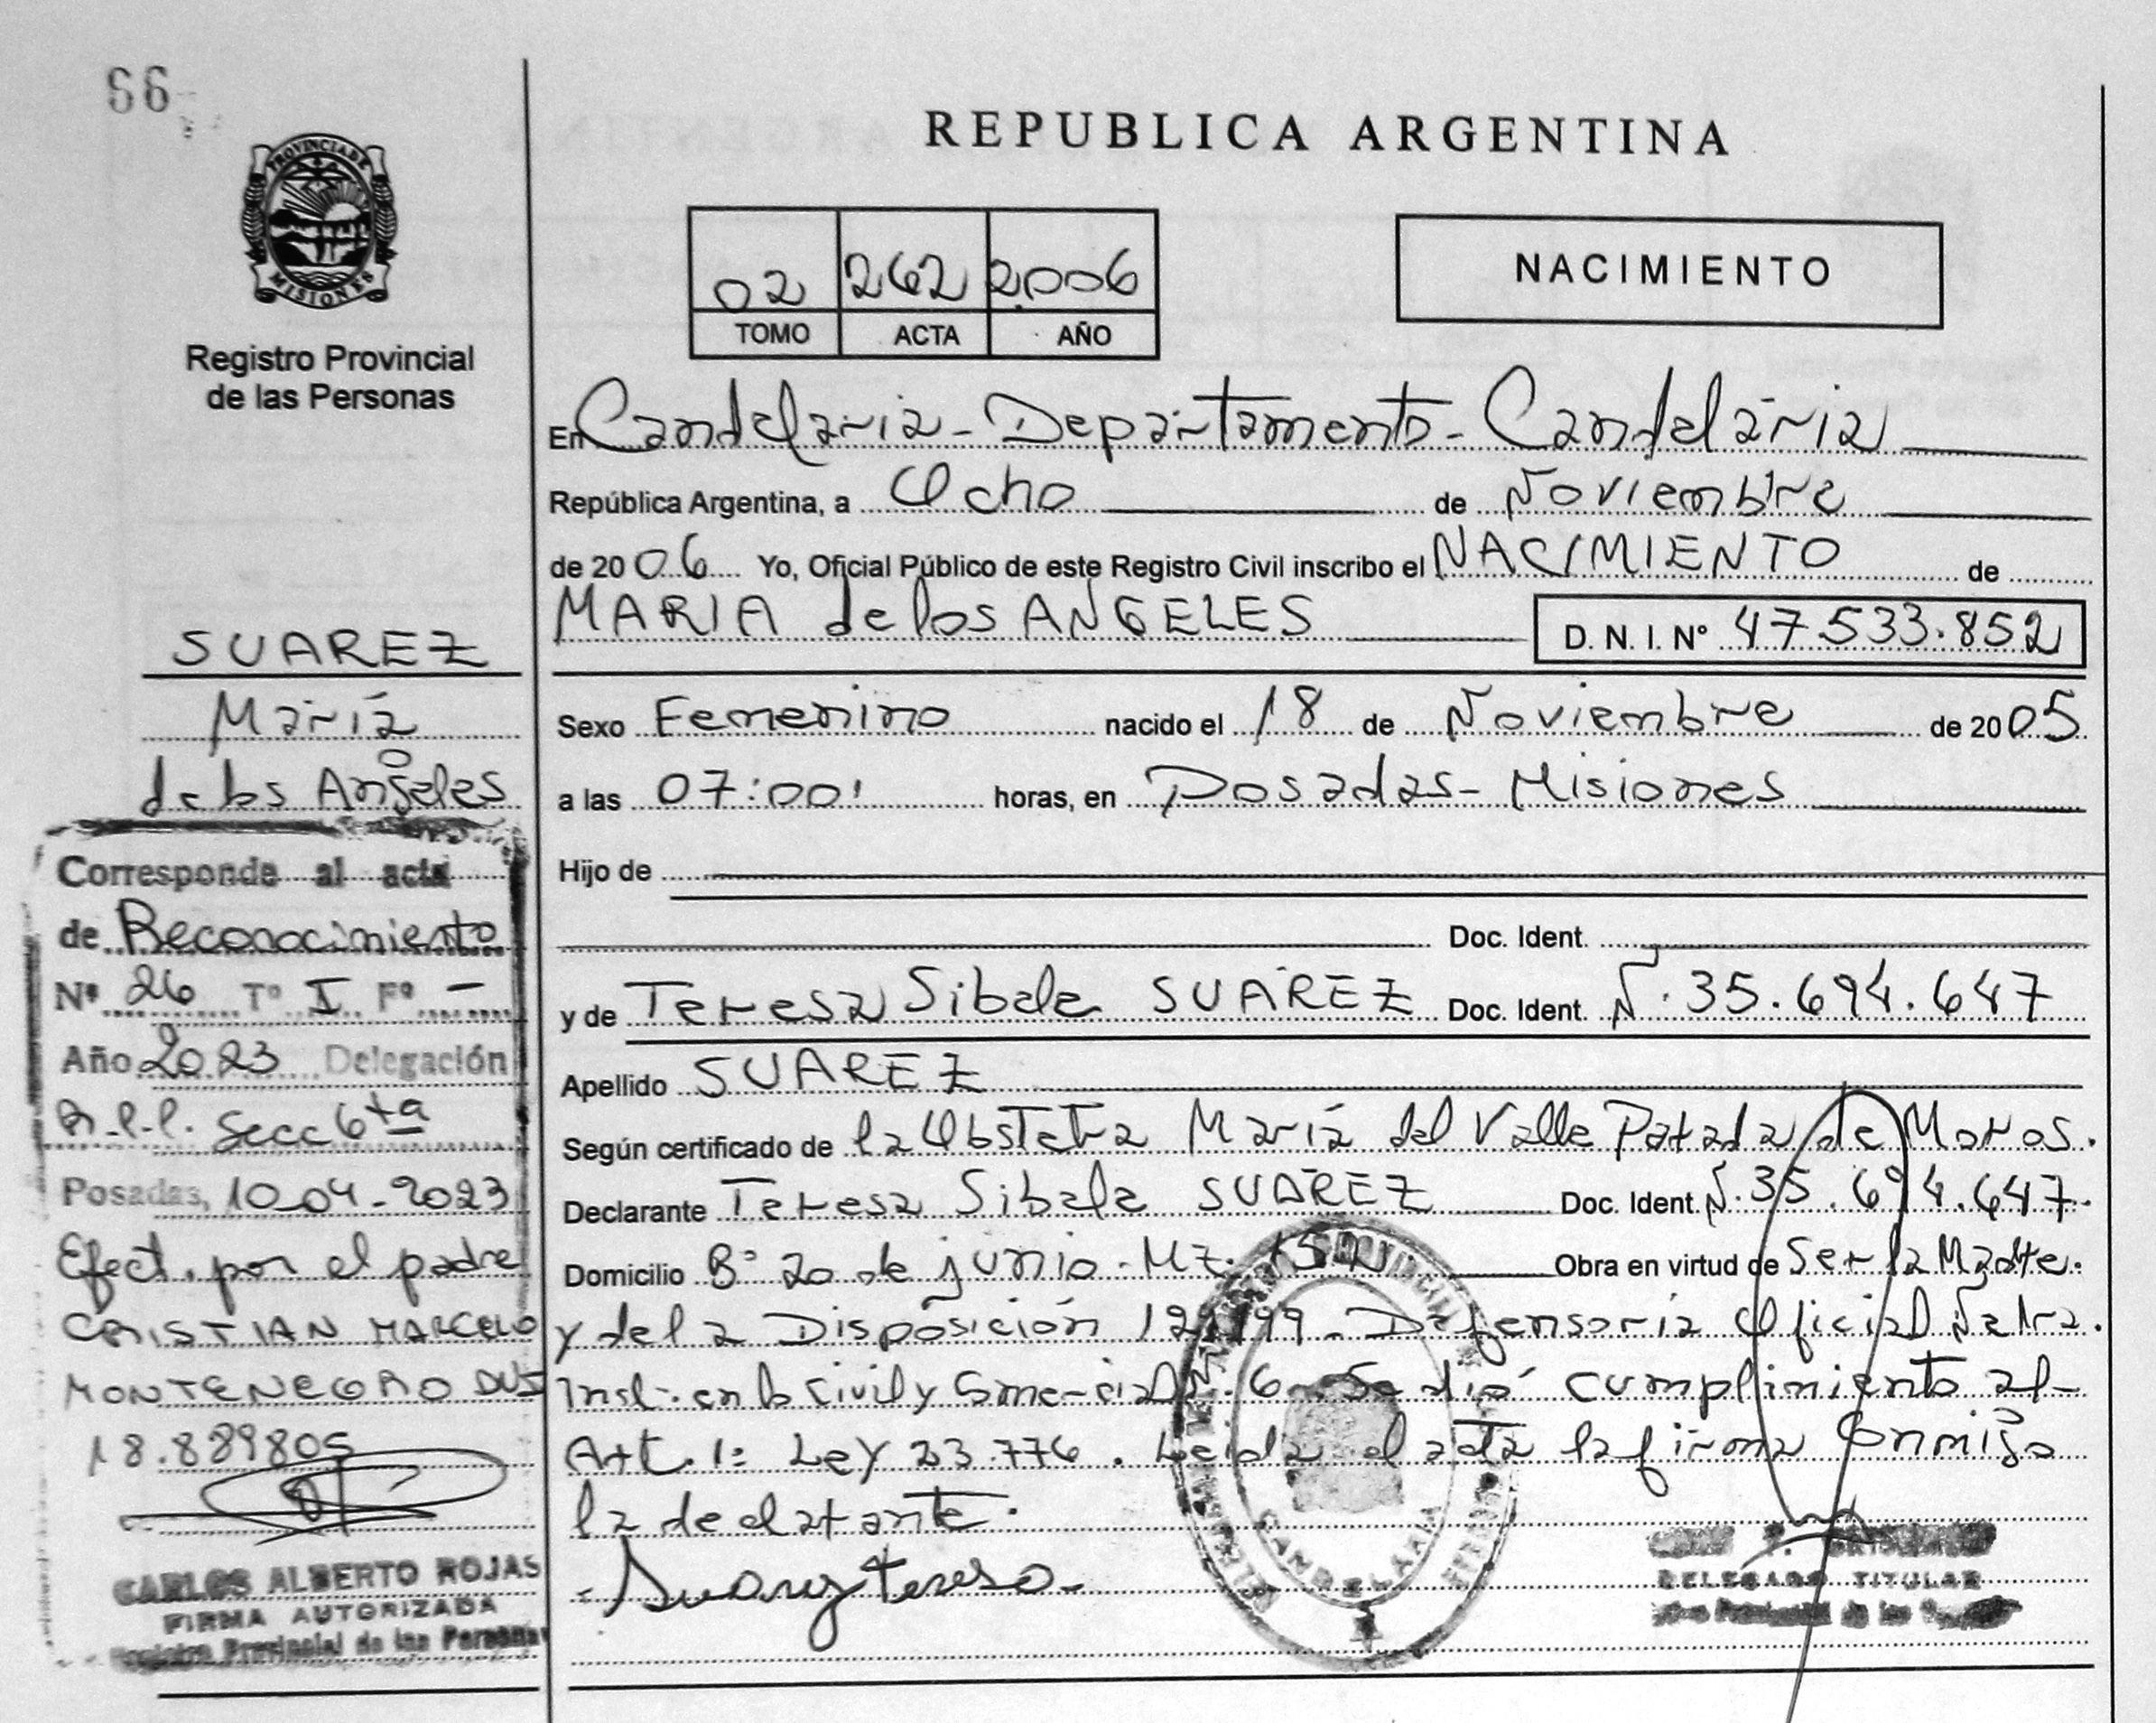 66
PROVINCIA DE
MISIONES
Registro Provincial
de las Personas
SUAREZ
María
de los Angeles
Corresponde al acta
de Reconocimiento
Nº 26 Tº I Fº -
Año 2023 Delegación
R.P.P. Secc 6ta
Posadas, 10-04-2023
Efect. por el padre
CRISTIAN MARCELO
MONTENEGRO DUS
18.889805
CARLOS ALBERTO ROJAS
FIRMA AUTORIZADA
Registro Provincial de las Personas
REPUBLICA ARGENTINA
02 262 2006
TOMO ACTA AÑO
NACIMIENTO
En Candelaria - Departamento - Candelaria
República Argentina, a Ocho de Noviembre
de 2006 Yo, Oficial Público de este Registro Civil inscribo el NACIMIENTO de
MARIA de los ANGELES D. N. I. Nº 47.533.852
Sexo Femenino nacido el 18 de Noviembre de 2005
a las 07:00' horas, en Posadas - Misiones
Hijo de
Doc. Ident.
y de Teresa Sibela SUAREZ Doc. Ident. Nº 35.694.647
Apellido SUAREZ
Según certificado de la Obstetra María del Valle Patada de Moros.
Declarante Teresa Sibela SUAREZ Doc. Ident. Nº 35.694.647.
Domicilio Bº 20 de junio - Mz. Obra en virtud de Ser la Madre.
y de la Disposición Defensoría Oficial
Inst. en lo Civil y Comercial 6. Se dió cumplimiento al
Art. 1º Ley 23.776. Leida el acta la firma Conmigo
la declarante.
Suarez teresa
CANDELARIA
DELEGADO TITULAR
Provincial de las